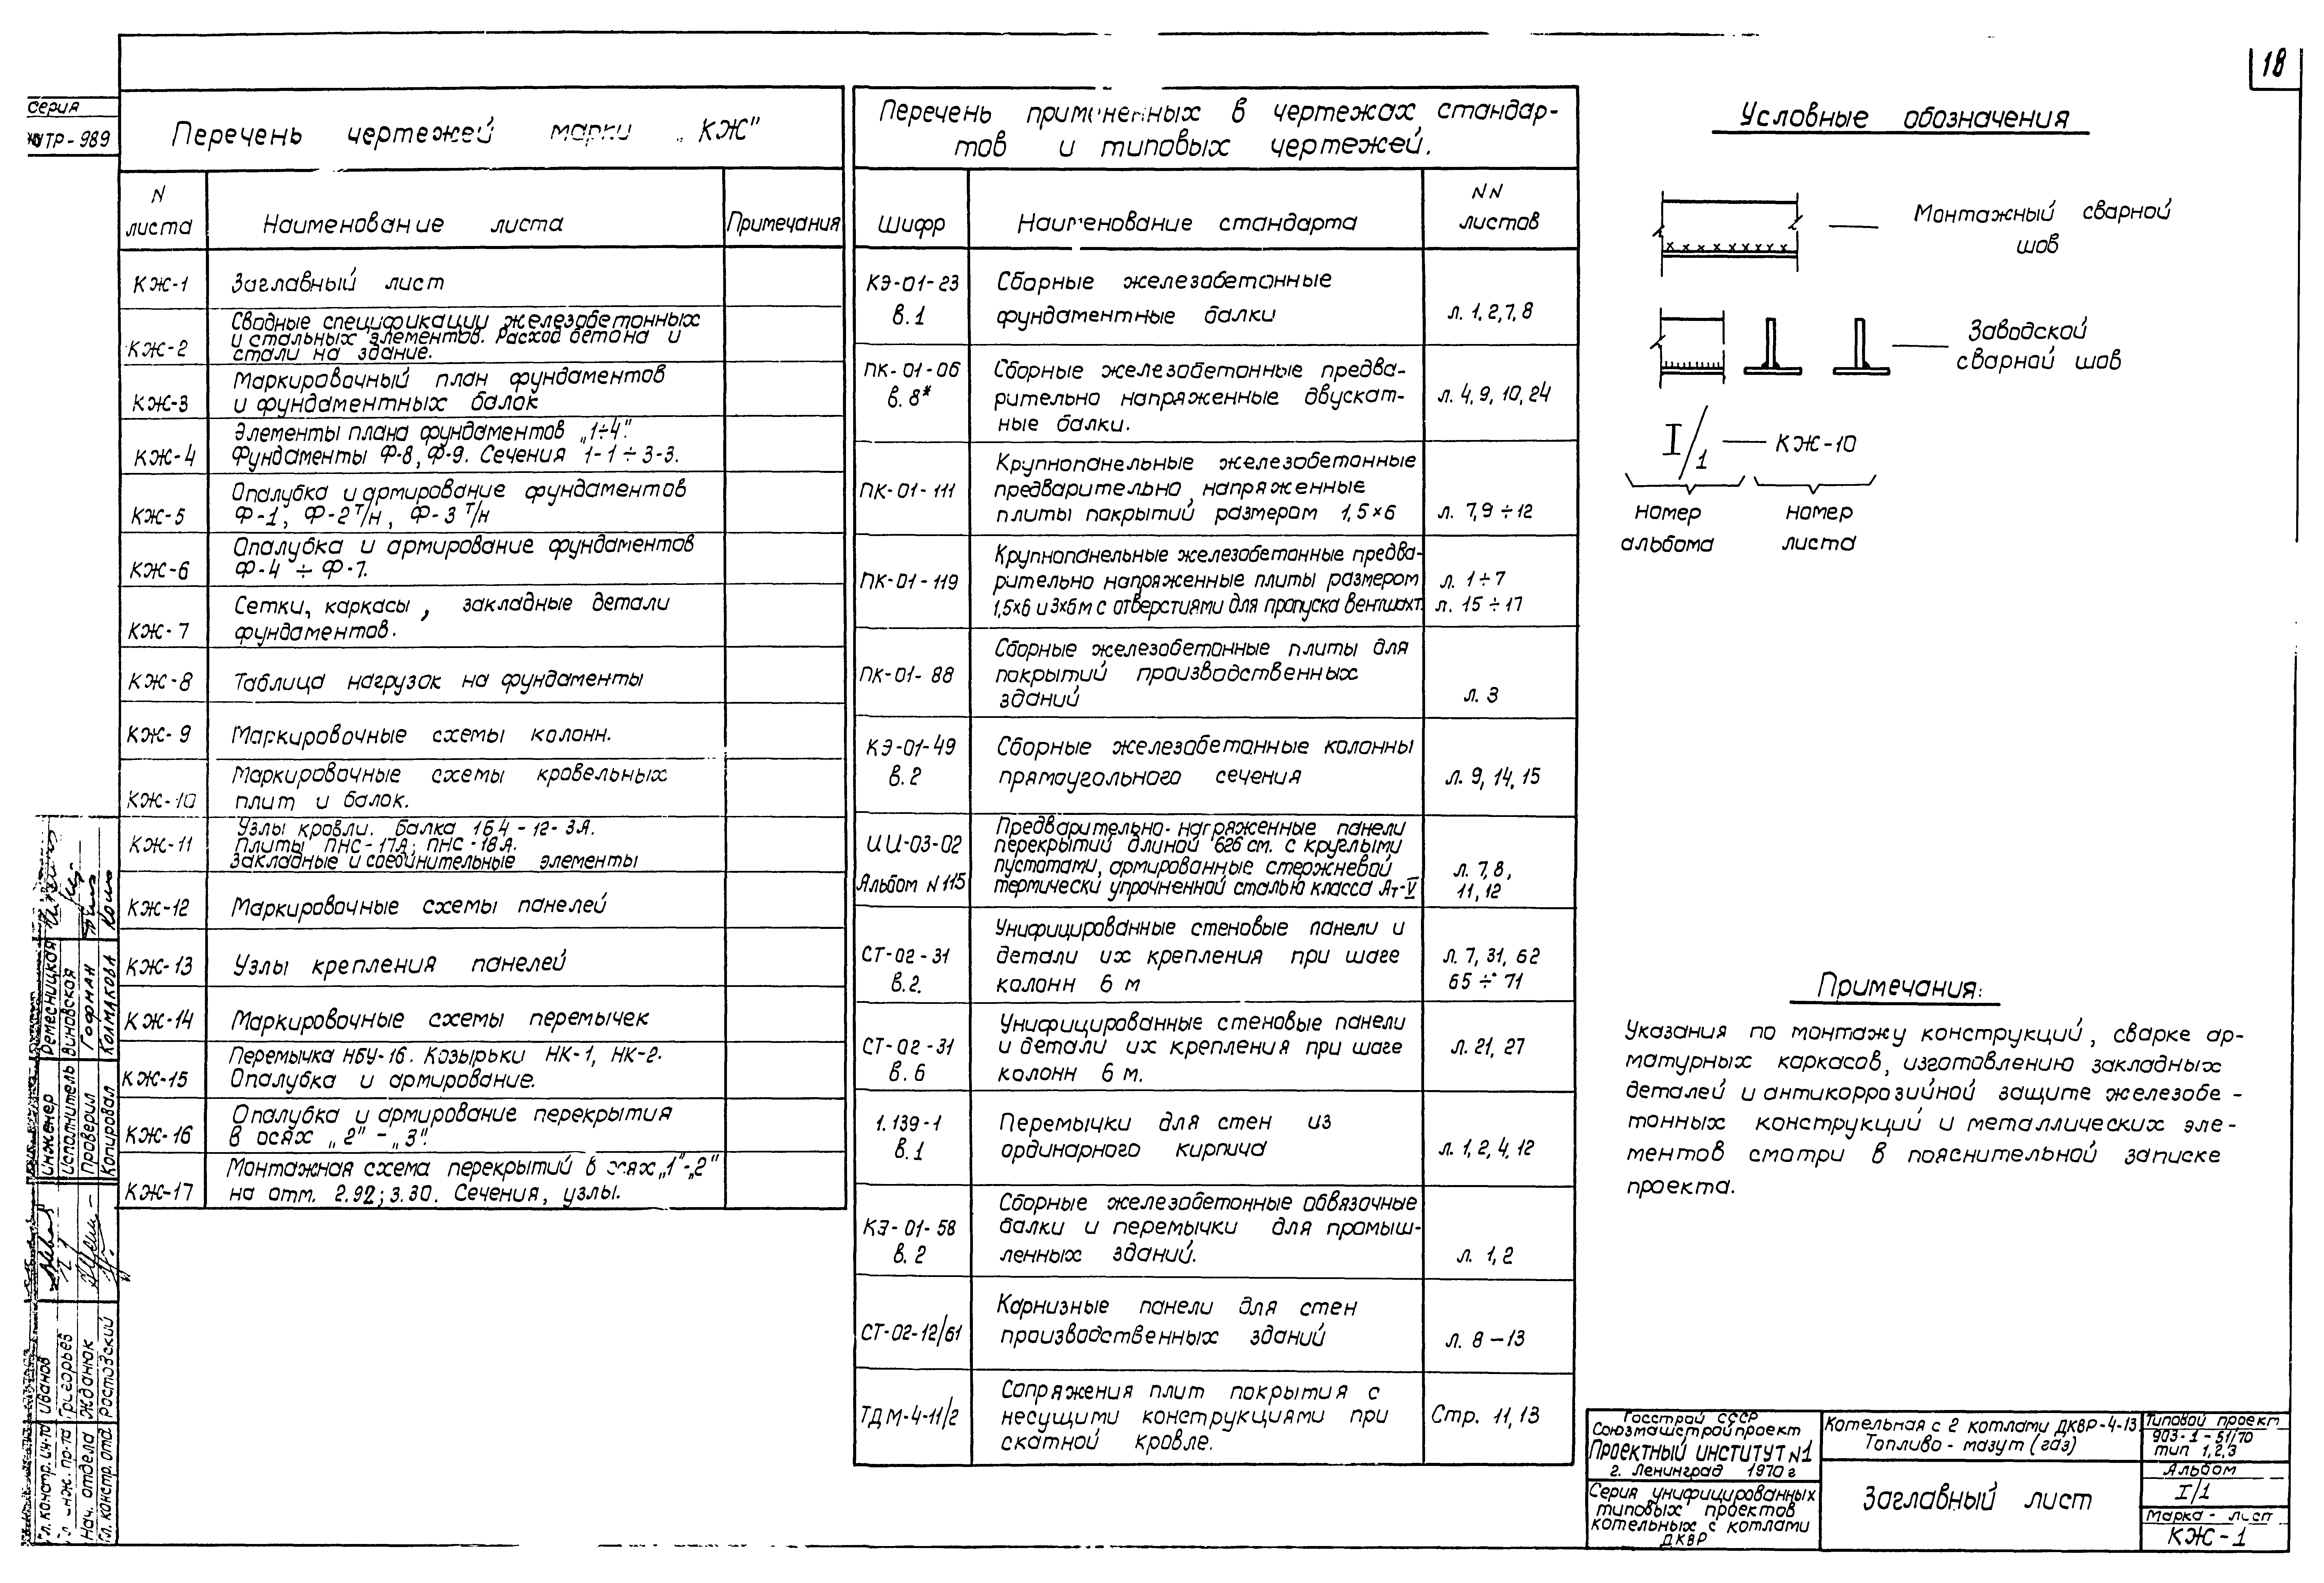 18
серия
ТР-989
Перечень чертежей марки „КЖ"
N
листа
Наименование листа
Примечания
КЖ-1
Заглавный лист
КЖ-2
Сводные спецификации железобетонных
и стальных элементов. Расход бетона и
стали на здание.
КЖ-3
Маркировочный план фундаментов
и фундаментных балок
КЖ-4
Элементы плана фундаментов „1÷4".
Фундаменты Ф-8, Ф-9. Сечения 1-1÷3-3.
КЖ-5
Опалубка и армирование фундаментов
Ф-1, Ф-2 т/н, Ф-3 т/н
КЖ-6
Опалубка и армирование фундаментов
Ф-4 ÷ Ф-7.
КЖ-7
Сетки, каркасы, закладные детали
фундаментов.
КЖ-8
Таблица нагрузок на фундаменты
КЖ-9
Маркировочные схемы колонн.
КЖ-10
Маркировочные схемы кровельных
плит и балок.
КЖ-11
Узлы кровли. Балка 1Б4-12-3А.
Плиты ПНС-17А; ПНС-18А.
Закладные и соединительные элементы
КЖ-12
Маркировочные схемы панелей
КЖ-13
Узлы крепления панелей
КЖ-14
Маркировочные схемы перемычек
КЖ-15
Перемычка НБУ-16. Козырьки НК-1, НК-2.
Опалубка и армирование.
КЖ-16
Опалубка и армирование перекрытия
в осях „2"-„3".
КЖ-17
Монтажная схема перекрытий в осях „1"-„2"
на отм. 2.92; 3.30. Сечения, узлы.
Перечень примененных в чертежах стандар-
тов и типовых чертежей.
Шифр
Наименование стандарта
NN
листов
КЭ-01-23
в.1
Сборные железобетонные
фундаментные балки
л. 1,2,7,8
ПК-01-06
в. 8*
Сборные железобетонные предва-
рительно напряженные двускат-
ные балки.
л. 4, 9, 10, 24
ПК-01-111
Крупнопанельные железобетонные
предварительно напряженные
плиты покрытий размером 1,5×6
л. 7,9÷12
ПК-01-119
Крупнопанельные железобетонные предва-
рительно напряженные плиты размером
1,5×6 и 3×6м с отверстиями для пропуска вентшахт.
л. 1÷7
л. 15÷17
ПК-01-88
Сборные железобетонные плиты для
покрытий производственных
зданий
л. 3
КЭ-01-49
в.2
Сборные железобетонные колонны
прямоугольного сечения
л. 9, 14, 15
ИИ-03-02
Альбом N 115
Предварительно-напряженные панели
перекрытий длиной 626 см. с круглыми
пустотами, армированные стержневой
термически упрочненной сталью класса Ат-V
л. 7,8,
11,12
СТ-02-31
в.2.
Унифицированные стеновые панели и
детали их крепления при шаге
колонн 6 м
л. 7, 31, 62
65÷71
СТ-02-31
в. 6
Унифицированные стеновые панели
и детали их крепления при шаге
колонн 6 м.
л. 21, 27
1.139-1
в.1
Перемычки для стен из
ординарного кирпича
л. 1, 2, 4, 12
КЭ-01-58
в. 2
Сборные железобетонные обвязочные
балки и перемычки для промыш-
ленных зданий.
л. 1, 2
СТ-02-12/61
Карнизные панели для стен
производственных зданий
л. 8-13
ТДМ-4-11/2
Сопряжения плит покрытия с
несущими конструкциями при
скатной кровле.
Стр. 11,13
Условные обозначения
Монтажный сварной
шов
Заводской
сварной шов
I/1 — КЖ-10
номер
альбома
номер
листа
Примечания:
Указания по монтажу конструкций, сварке ар-
матурных каркасов, изготовлению закладных
деталей и антикоррозийной защите железобе-
тонных конструкций и металлических эле-
ментов смотри в пояснительной записке
проекта.
Госстрой СССР
Союзмашстройпроект
Проектный институт N1
г. Ленинград 1970 г
Серия унифицированных
типовых проектов
котельных с котлами
ДКВР
Котельная с 2 котлами ДКВР-4-13
Топливо-мазут (газ)
Заглавный лист
Типовой проект
903-1-51/70
тип 1,2,3
Альбом
I/1
Марка-лист
КЖ-1
Инженер Ремесницкая
Исполнитель Виновская
Проверил Гофман
Копировал Колмакова
Гл. констр. ин-та Иванов
инж. пр-та Григорьев
Нач. отдела Жданюк
Гл. констр. отд Ростовский